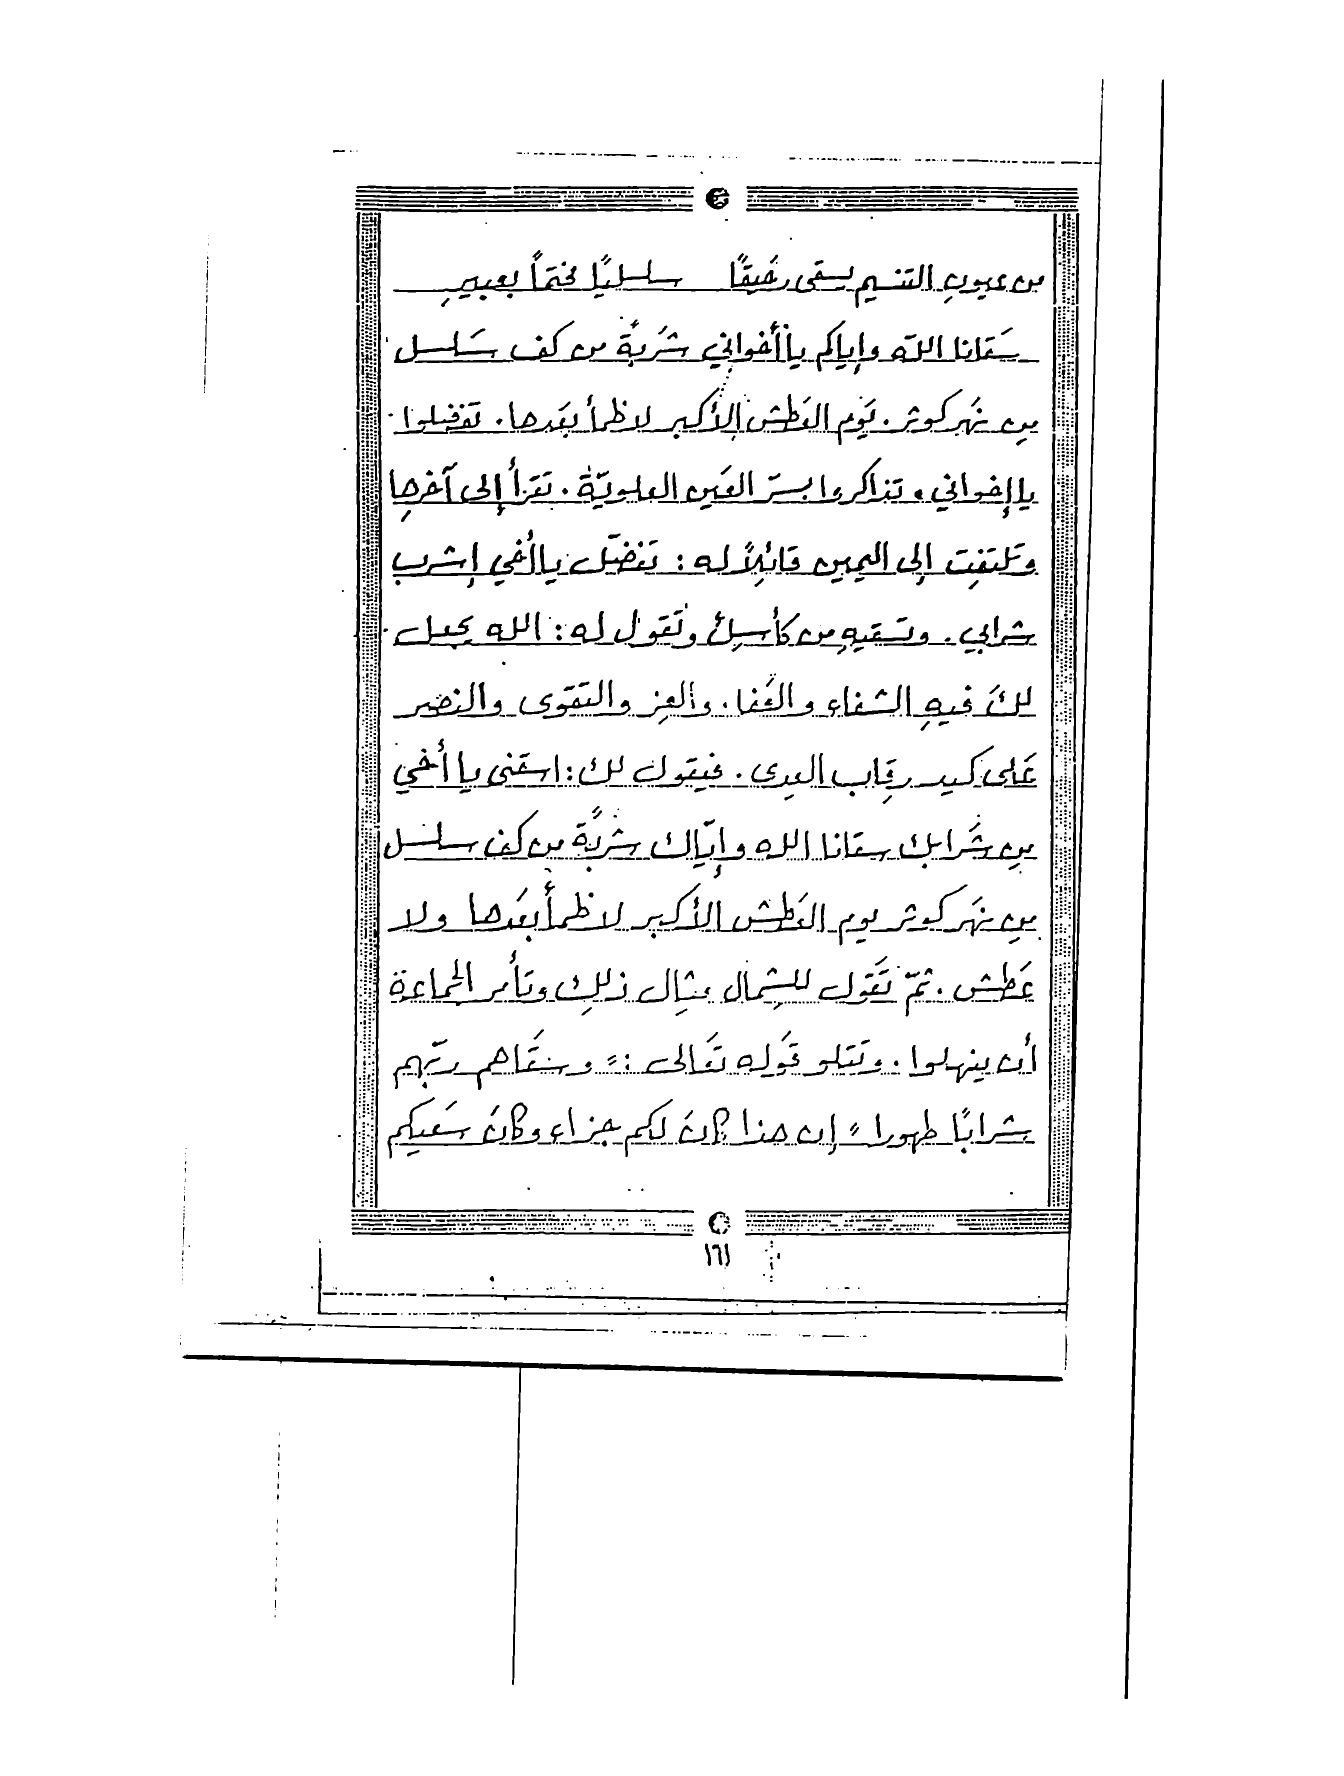 من عيون التنسيم يسقى رحيقًا سلسليًا مختمًا بعبيرِ
سَقانا الله وإياكم يا أخواني شَربةً من كف سَلسل
مِن نهَر كوثر. يَوم العَطش الأكبر لا ظمأ بعَدها. تفضلوا
يا إخواني وتذاكروا بسرّ العَين العلويّة. تقرأ إلى آخرها
وتَلتفِت إلى اليمين قائِلاً له: تفضّل يا أخي إشرب
شرابي. وتسقيهِ من كأسِك وتَقول له: الله يجعل
لكَ فيهِ الشفاء والعَفا. والعِز والتقوى والنصر
عَلى كيد رقِاب العِدى. فيَقول لك: اسقني يا أُخَي
مِن شَرابك سقانا الله وإيّاك شربةً من كف سلسل
مِن نهَر كوثر يوم العَطش الأكبر لا ظمأ بعَدها ولا
عَطش. ثمّ تَقول للشِمال مِثال ذلِك وتأمر الجماعة
أن ينهلوا. وتَتلو قَوله تعَالى: " وسَقَاهم ربّهم
شرابًا طهورا " إن هذا كانَ لكم جزاء وكانَ سَعيكم
١٦١